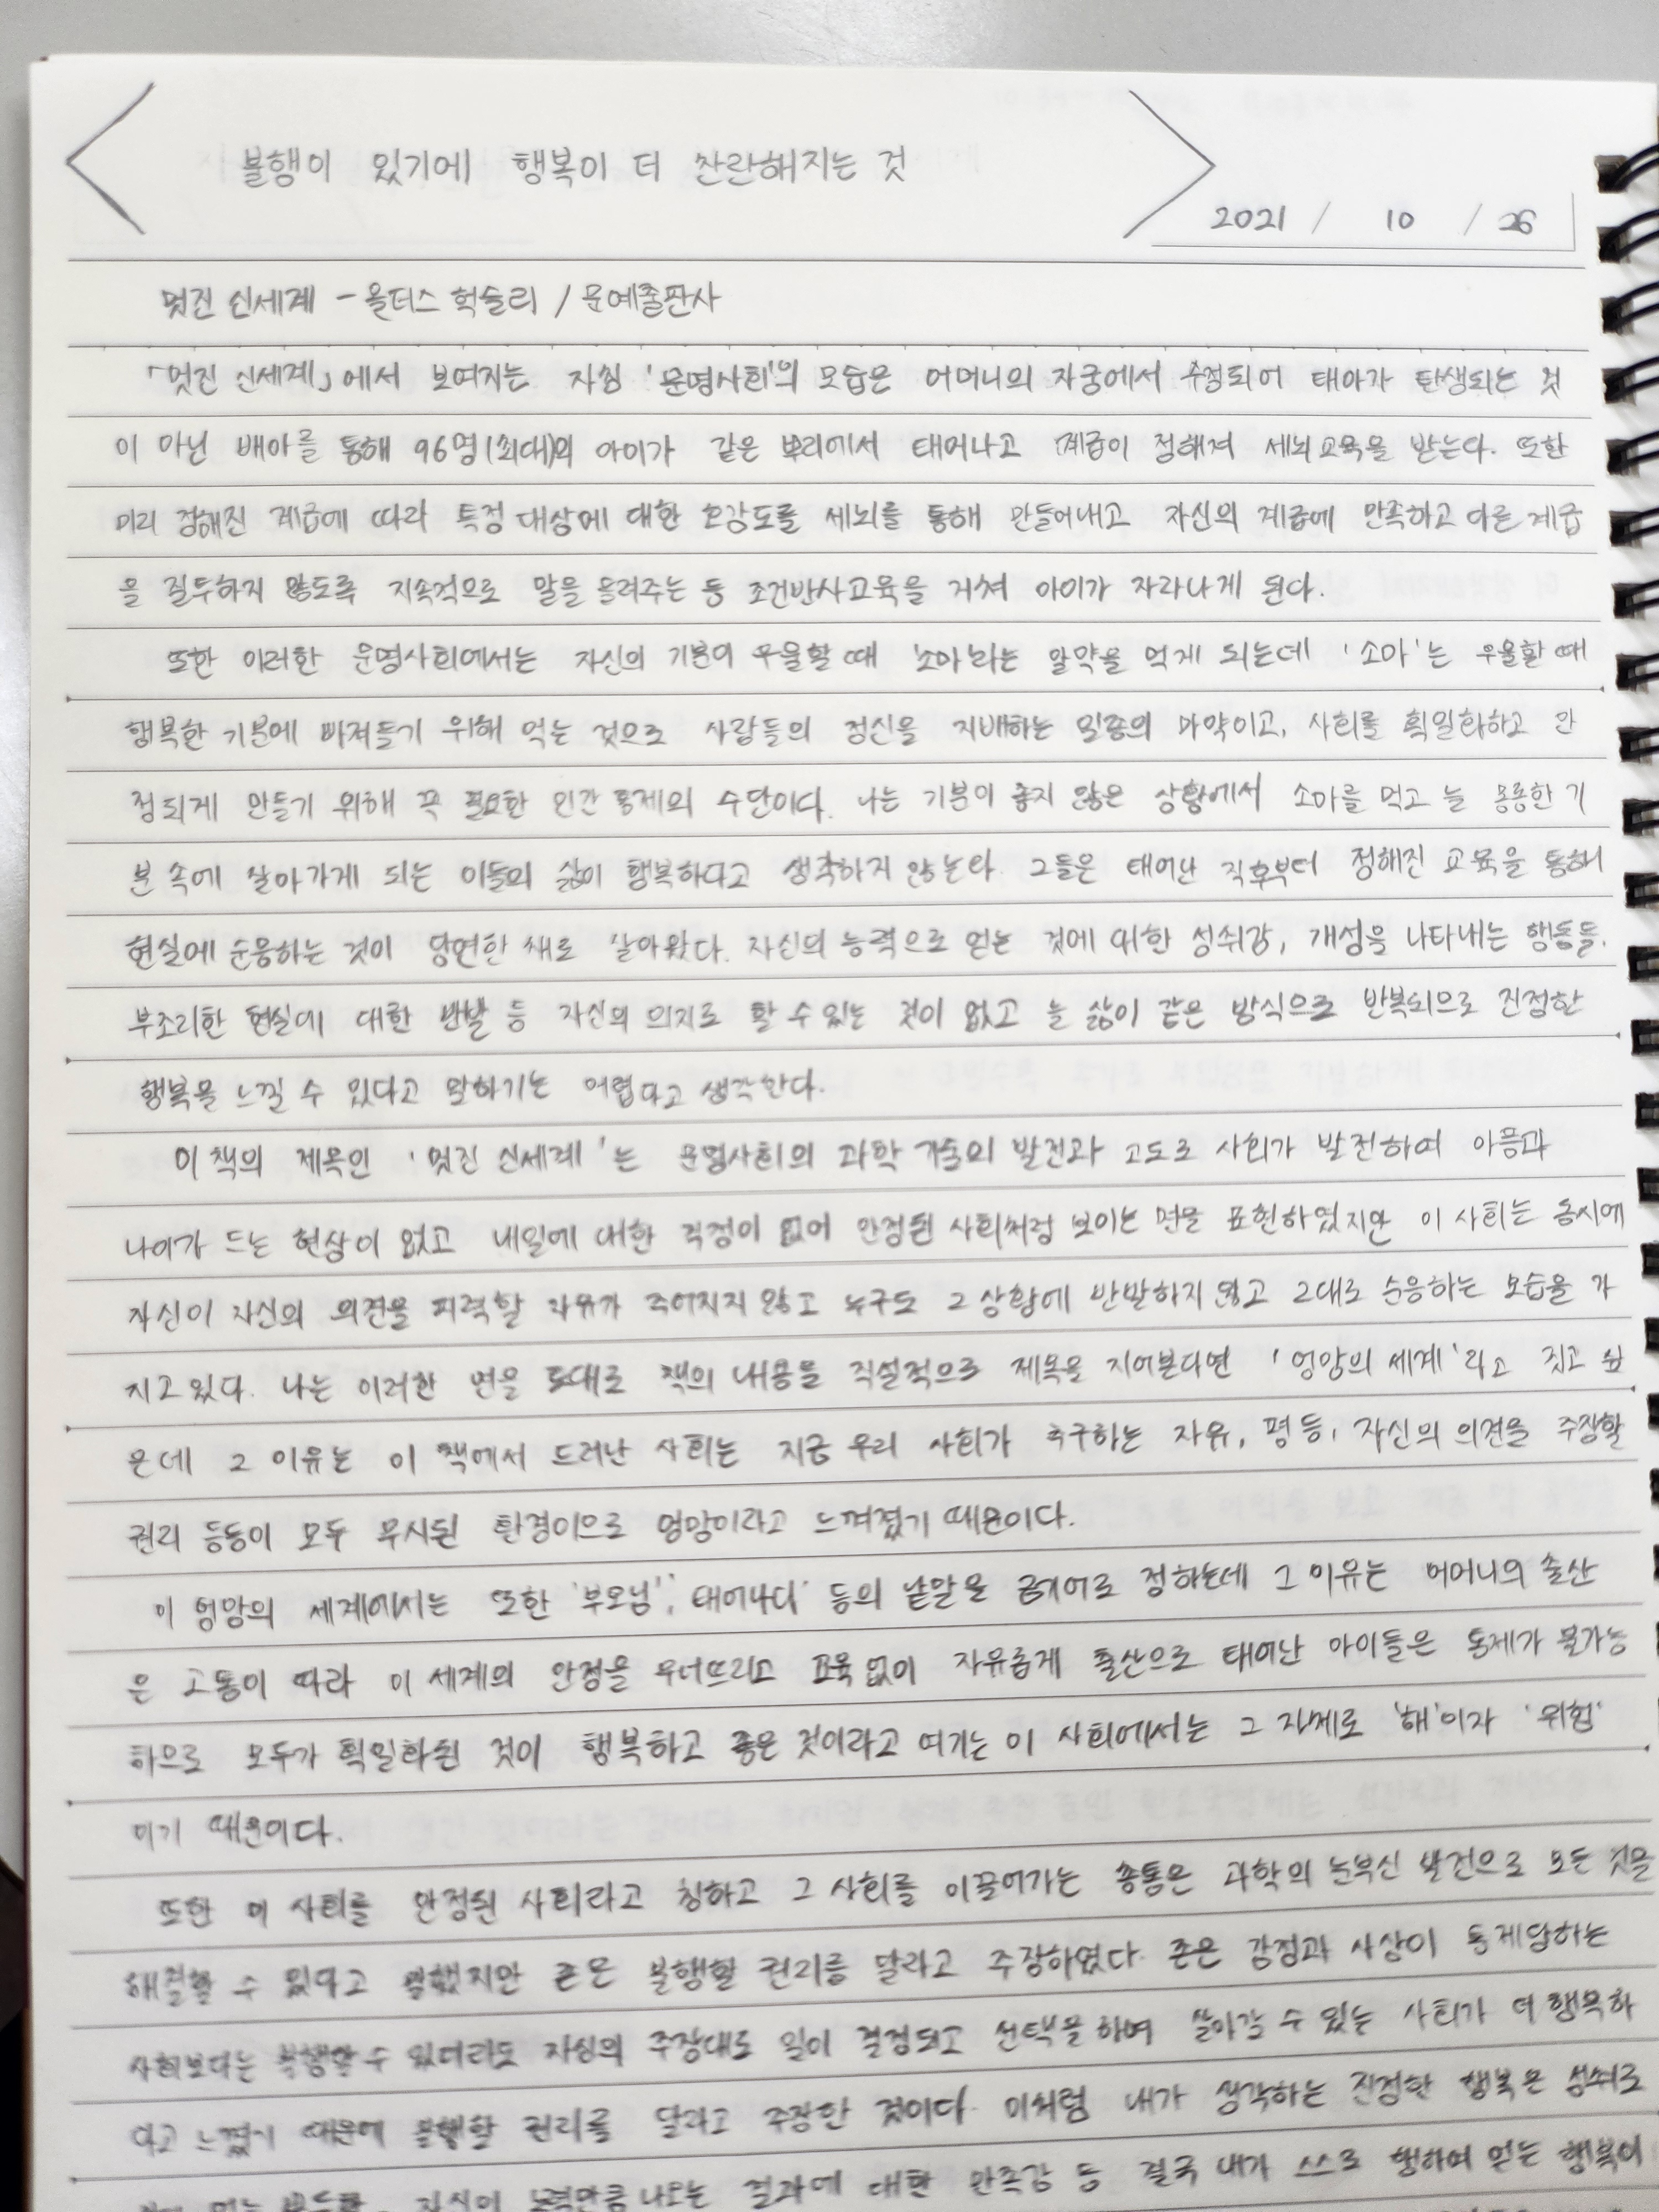 불행이 있기에 행복이 더 찬란해지는 것
2021 / 10 / 26
멋진 신세계 - 올더스 헉슬리 / 문예출판사
「멋진 신세계」에서 보여지는 자칭 '문명사회'의 모습은 어머니의 자궁에서 수정되어 태아가 탄생되는 것
이 아닌 배아를 통해 96명(최대)의 아이가 같은 뿌리에서 태어나고 계급이 정해져 세뇌교육을 받는다. 또한
미리 정해진 계급에 따라 특정 대상에 대한 호감도를 세뇌를 통해 만들어내고 자신의 계급에 만족하고 다른 계급
을 질투하지 않도록 지속적으로 말을 들려주는 등 조건반사교육을 거쳐 아이가 자라나게 된다.
또한 이러한 문명사회에서는 자신의 기분이 우울할 때 '소마'라는 알약을 먹게 되는데 '소마'는 우울할 때
행복한 기분에 빠져들기 위해 먹는 것으로 사람들의 정신을 지배하는 일종의 마약이고, 사회를 획일화하고 안
정되게 만들기 위해 꼭 필요한 인간 통제의 수단이다. 나는 기분이 좋지 않은 상황에서 소마를 먹고 늘 몽롱한 기
분 속에 살아가게 되는 이들의 삶이 행복하다고 생각하지 않는다. 그들은 태어난 직후부터 정해진 교육을 통해
현실에 순응하는 것이 당연한 채로 살아왔다. 자신의 능력으로 얻는 것에 의한 성취감, 개성을 나타내는 행동들,
부조리한 현실에 대한 반발 등 자신의 의지로 할 수 있는 것이 없고 늘 삶이 같은 방식으로 반복되므로 진정한
행복을 느낄 수 있다고 말하기는 어렵다고 생각한다.
이 책의 제목인 '멋진 신세계'는 문명사회의 과학 기술의 발전과 고도로 사회가 발전하여 아픔과
나이가 드는 현상이 없고 내일에 대한 걱정이 없어 안정된 사회처럼 보이는 면을 표현하였지만 이 사회는 동시에
자신이 자신의 의견을 피력할 자유가 주어지지 않고 누구도 그 상황에 반발하지 않고 그대로 순응하는 모습을 가
지고 있다. 나는 이러한 면을 토대로 책의 내용을 직설적으로 제목을 지어본다면 '엉망의 세계'라고 짓고 싶
은데 그 이유는 이 책에서 드러난 사회는 지금 우리 사회가 추구하는 자유, 평등, 자신의 의견을 주장할
권리 등등이 모두 무시된 환경이므로 엉망이라고 느껴졌기 때문이다.
이 엉망의 세계에서는 또한 '부모님', '태어나다' 등의 낱말을 금기어로 정하는데 그 이유는 어머니의 출산
은 고통이 따라 이 세계의 안정을 무너뜨리고 교육 없이 자유롭게 출산으로 태어난 아이들은 통제가 불가능
하므로 모두가 획일화된 것이 행복하고 좋은 것이라고 여기는 이 사회에서는 그 자체로 '해'이자 '위험'
이기 때문이다.
또한 이 사회를 안정된 사회라고 칭하고 그 사회를 이끌어가는 총통은 과학의 눈부신 발전으로 모든 것을
해결할 수 있다고 말했지만 존은 불행할 권리를 달라고 주장하였다. 존은 감정과 사상이 통제당하는
사회보다는 불행할 수 있더라도 자신의 주장대로 일이 결정되고 선택을 하여 살아갈 수 있는 사회가 더 행복하
다고 느꼈기 때문에 불행할 권리를 달라고 주장한 것이다. 이처럼 내가 생각하는 진정한 행복은 성취로
자신의 노력만큼 나오는 결과에 대한 만족감 등 결국 내가 스스로 행하여 얻는 행복이